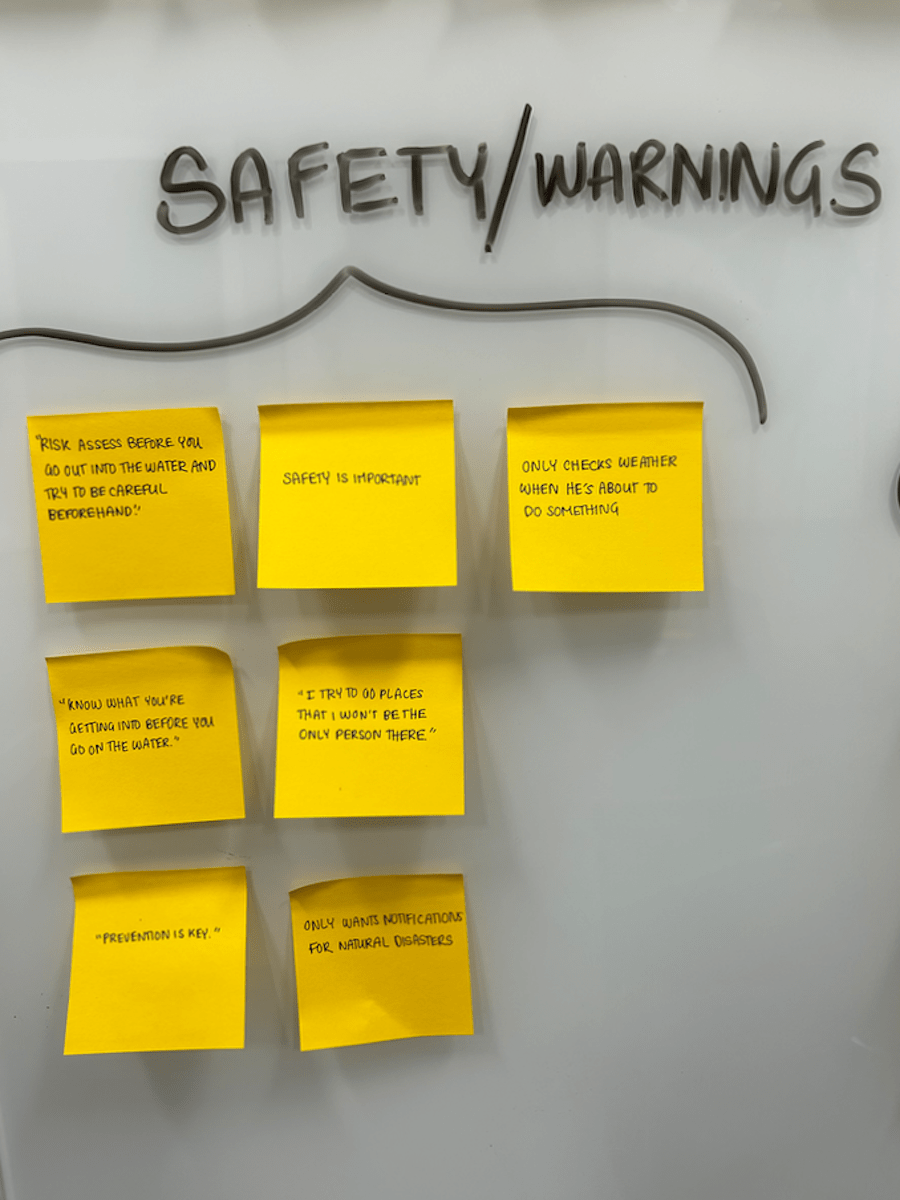 SAFETY/WARNINGS
"RISK ASSESS BEFORE YOU
GO OUT INTO THE WATER AND
TRY TO BE CAREFUL
BEFOREHAND."
SAFETY IS IMPORTANT
ONLY CHECKS WEATHER
WHEN HE'S ABOUT TO
DO SOMETHING
"KNOW WHAT YOU'RE
GETTING INTO BEFORE YOU
GO ON THE WATER."
"I TRY TO GO PLACES
THAT I WON'T BE THE
ONLY PERSON THERE"
"PREVENTION IS KEY."
ONLY WANTS NOTIFICATIONS
FOR NATURAL DISASTERS